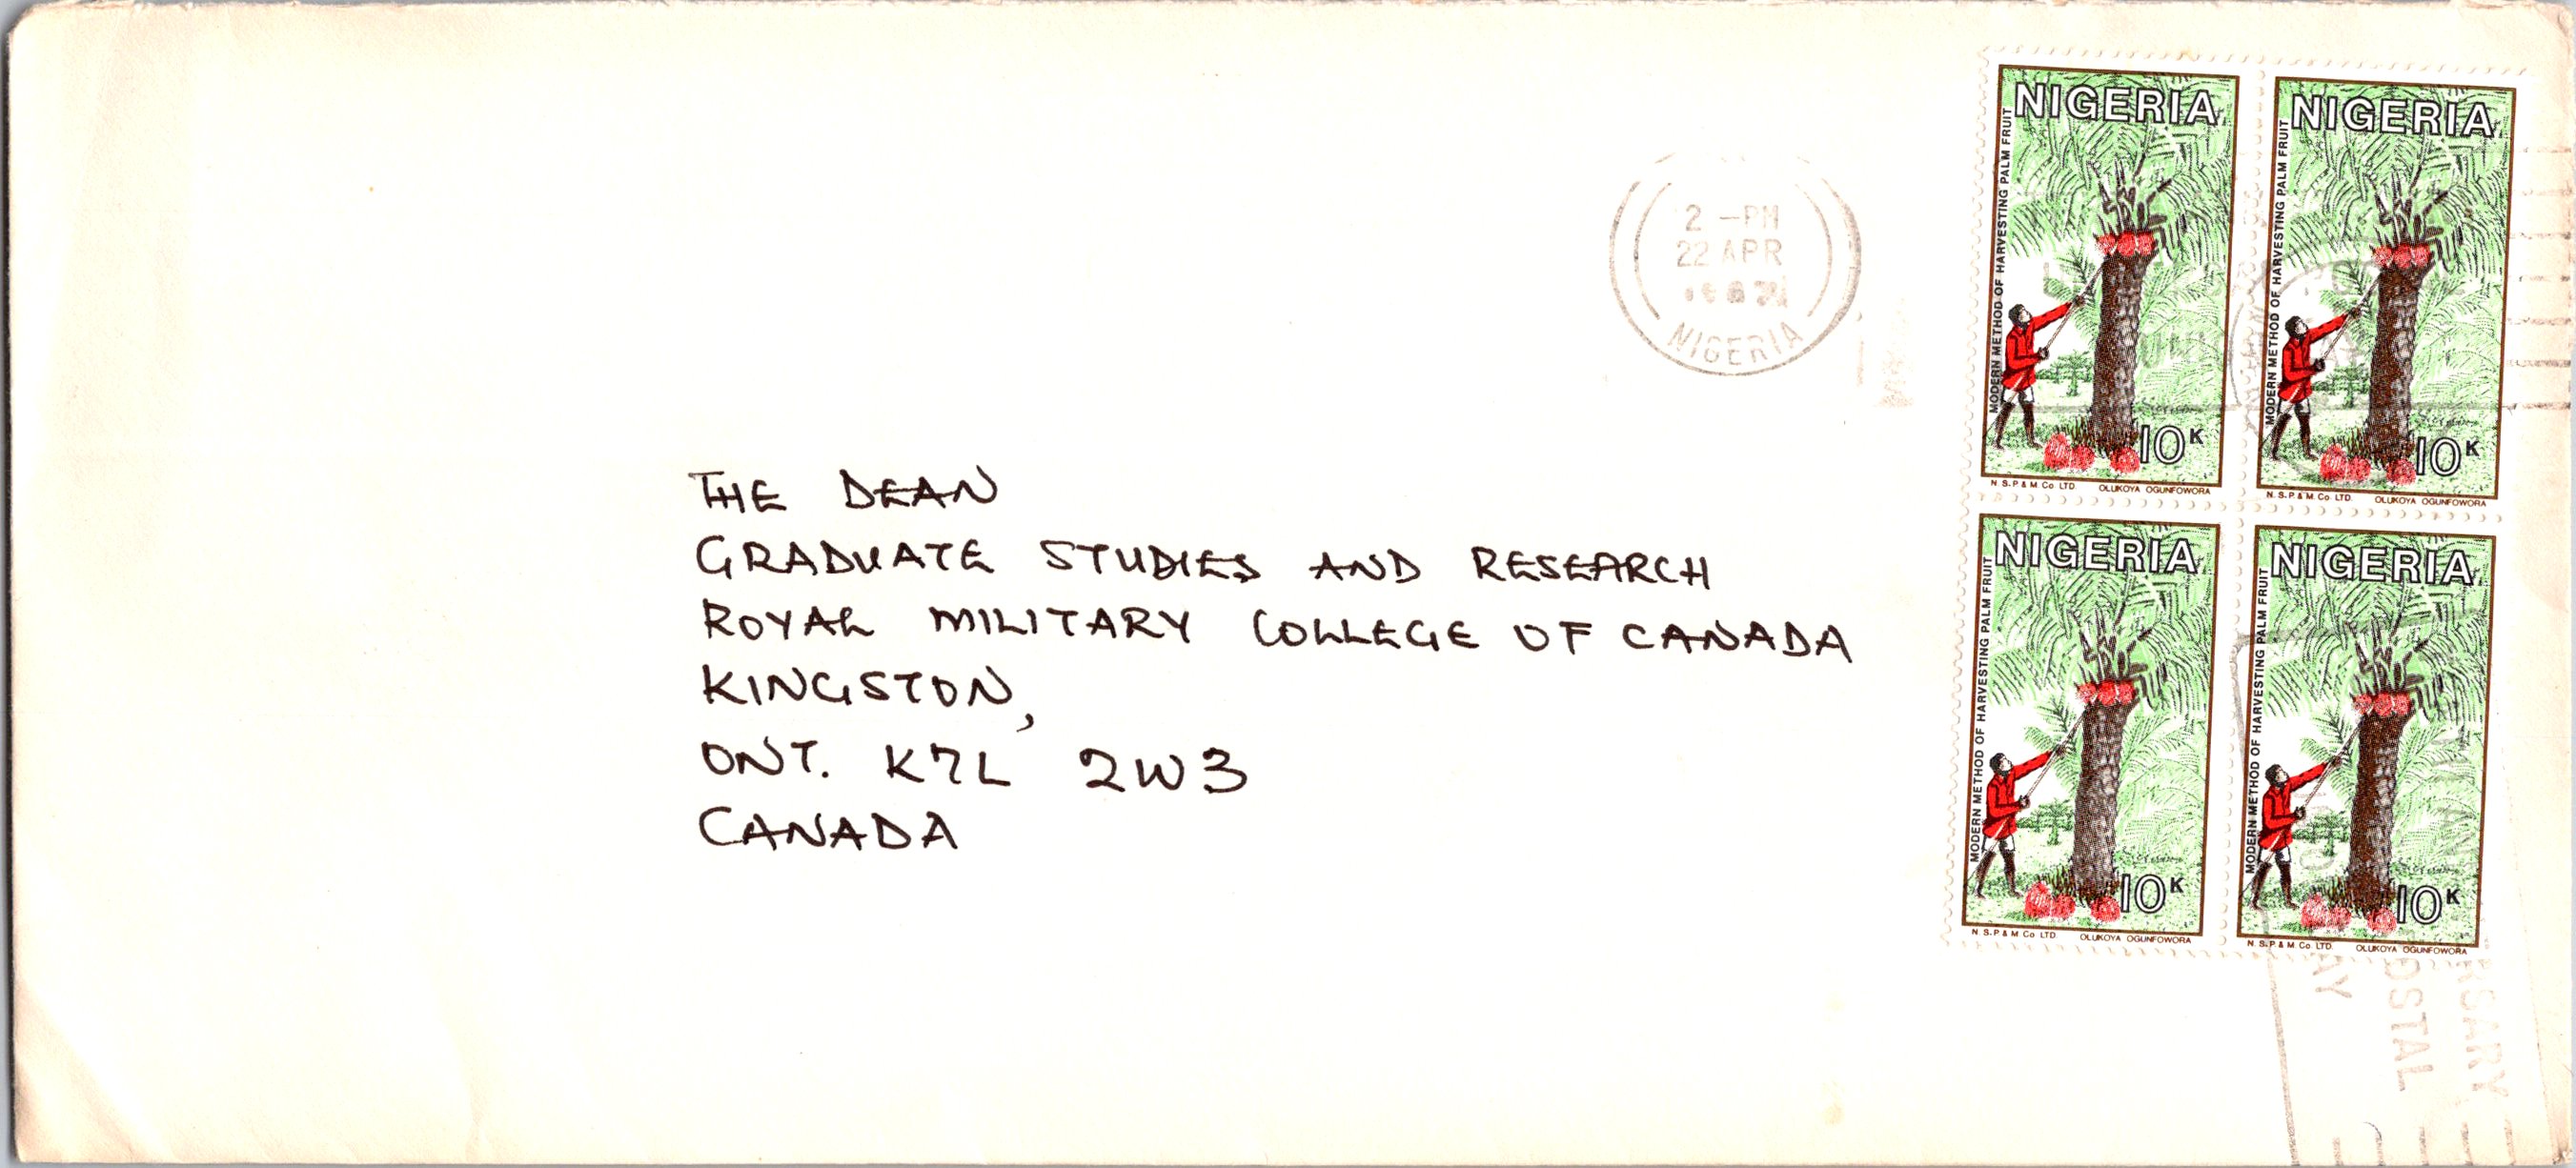 2 -PM
22 APR
NIGERIA
NIGERIA
MODERN METHOD OF HARVESTING PALM FRUIT
10K
N.S.P & M Co LTD. OLUKOYA OGUNFOWORA
NIGERIA
MODERN METHOD OF HARVESTING PALM FRUIT
10K
N.S.P & M Co LTD. OLUKOYA OGUNFOWORA
THE DEAN
GRADUATE STUDIES AND RESEARCH
ROYAL MILITARY COLLEGE OF CANADA
KINGSTON,
ONT. K7L 2W3
CANADA
NIGERIA
MODERN METHOD OF HARVESTING PALM FRUIT
10K
N.S.P & M Co LTD. OLUKOYA OGUNFOWORA
NIGERIA
MODERN METHOD OF HARVESTING PALM FRUIT
10K
N.S.P & M Co LTD. OLUKOYA OGUNFOWORA